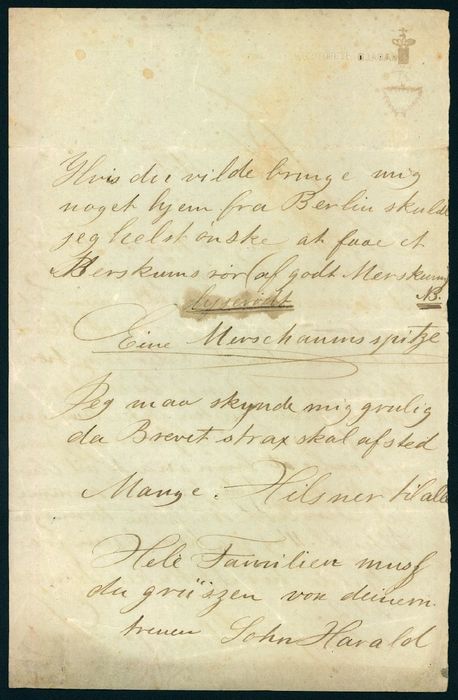 Hvis du vilde bringe mig
noget hjem fra Berlin skulde
jeg helst ønske at faae et
Merskumsrør (af godt Merskum)
NB.
Eine Merschaumsspitze
Jeg maa skynde mig grulig
da Brevet strax skal afsted
Mange Hilsner til alle
Hele Familien musz
du grüszen von deinem
treuen Sohn Harald